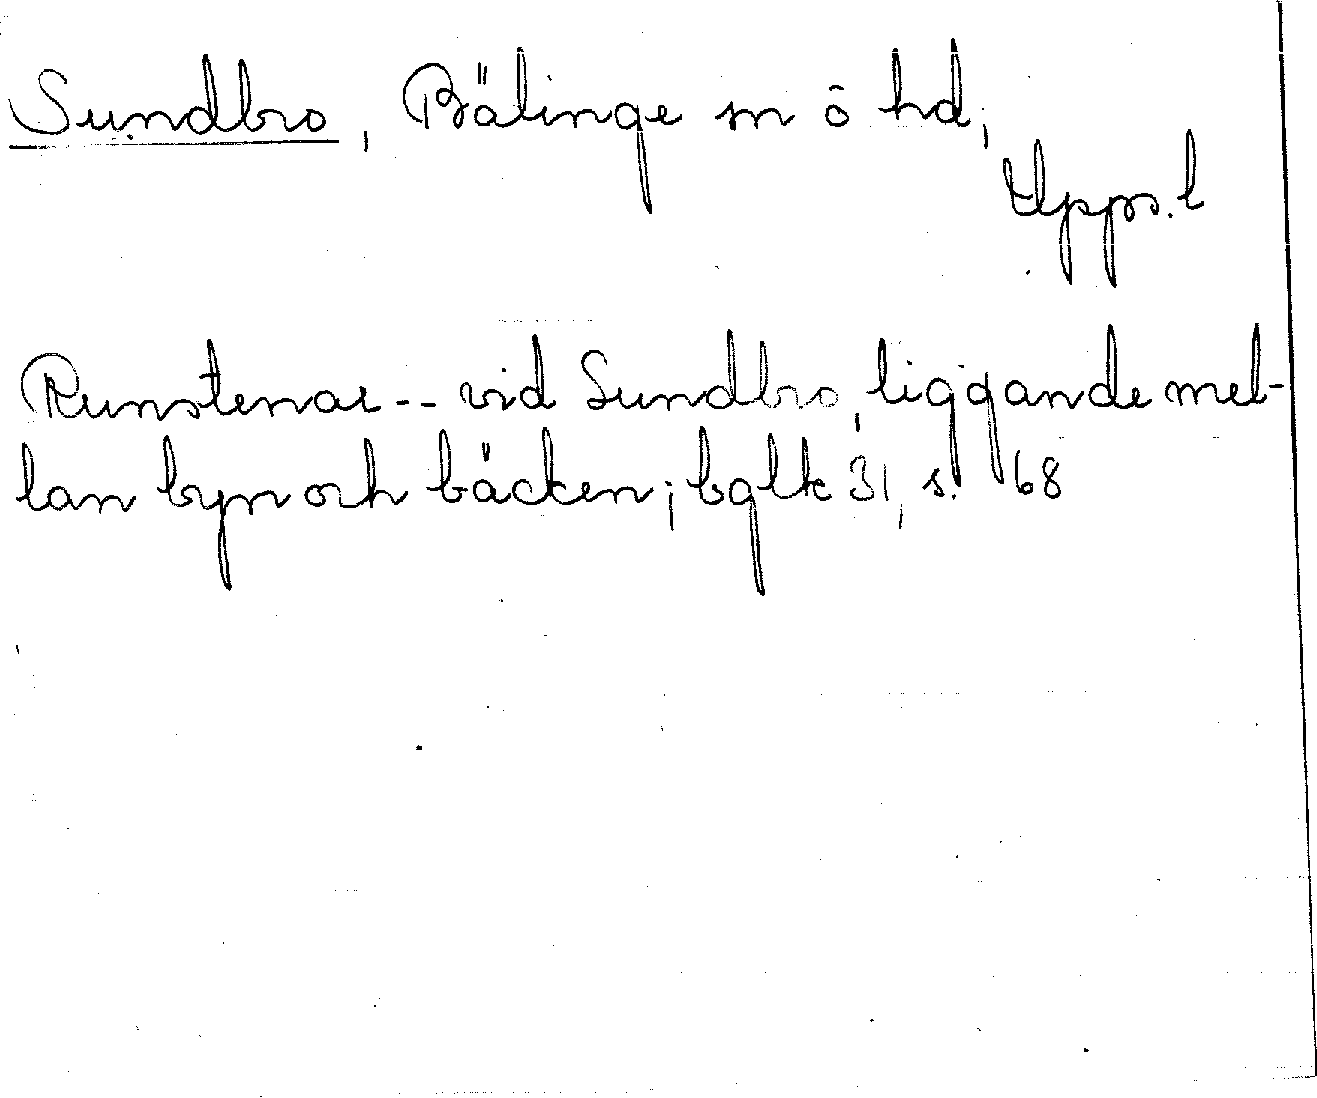 Sundbro, Bälinge sn ö hd;
Upps. l
Runstenar -- vid Sundbro, liggande mel-
lan byn och bäcken; bglk 31, s. 68